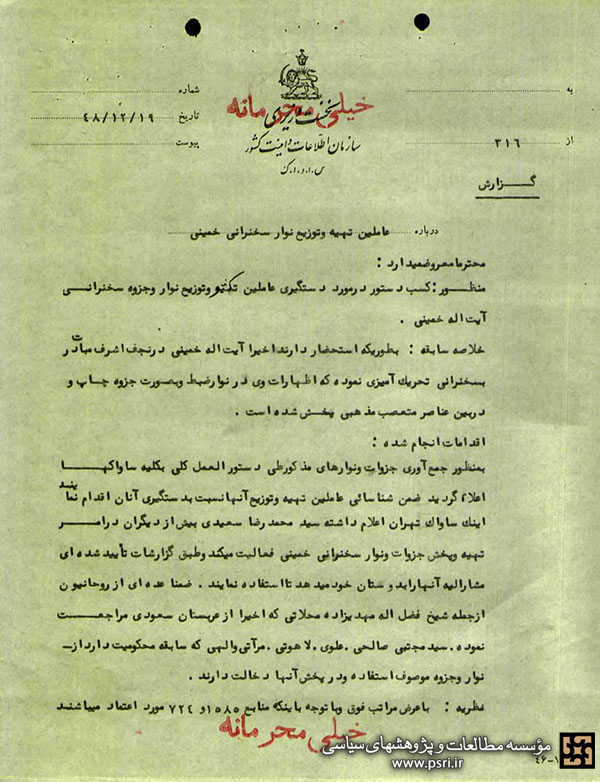 خیلی محرمانه
نخست وزیری
سازمان اطلاعات و امنیت کشور
س.ا.و.ا.ک
به
از ۳۱۶
شماره
تاریخ ۴۸/۱۲/۱۹
پیوست
گزارش
درباره عاملین تهیه وتوزیع نوار سخنرانی خمینی
محترما معروضمیدارد :
منظور : کسب دستور درمورد دستگیری عاملین تکثیر وتوزیع نوار وجزوه سخنرانی
آیت اله خمینی .
خلاصه سابقه : بطوریکه استحضار دارند اخیرا آیت اله خمینی درنجف اشرف مبادرت
بسخنرانی تحریک آمیزی نموده که اظهارات وی در نوار ضبط وبصورت جزوه چاپ و
دربین عناصر متعصب مذهبی پخش شده است .
اقدامات انجام شده :
بمنظور جمع آوری جزوات ونوارهای مذکورطی دستور العمل کلی بکلیه ساواکها
اعلام گردید ضمن شناسائی عاملین تهیه وتوزیع آنهانسبت بدستگیری آنان اقدام نمایند
اینک ساواک تهران اعلام داشته سید محمد رضا سعیدی بیش از دیگران درامر
تهیه وپخش جزوات ونوار سخنرانی خمینی فعالیت میکند وطبق گزارشات تأیید شده ای
مشارالیه آنهارابدوستان خود میدهد تااستفاده نمایند . ضمنا عده ای از روحانیون
ازجمله شیخ فضل اله مهدیزاده محلاتی که اخیرا از عربستان سعودی مراجعت
نموده . سید مجتبی صالحی . علوی . لاهوتی . مرآتی والهی که سابقه محکومیت دارد از
نوار وجزوه موصوف استفاده ودر پخش آنها دخالت دارند .
نظریه : باعرض مراتب فوق وبا توجه باینکه منابع ۱۵۸۵ و ۷۲۴ مورد اعتماد میباشند
خیلی محرمانه
مؤسسه مطالعات و پژوهشهای سیاسی
www.psri.ir
۴۶-۱